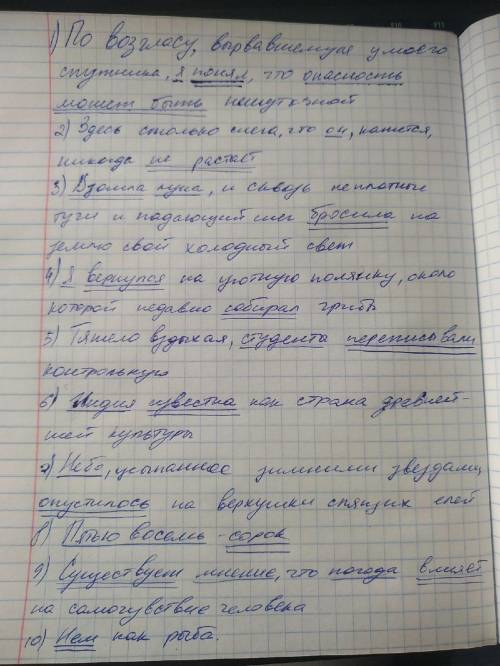 1) По возгласу, вырвавшемуся у моего
спутника, я понял, что опасность
может быть нешуточной
2) Здесь столько снега, что он, кажется,
никогда не растает
3) Взошла луна, и сквозь неплотные
тучи и падающий снег бросила на
землю свой холодный свет
4) Я вернулся на уютную полянку, около
которой недавно собирал грибы
5) Тяжело вздыхая, студенты переписывали
контрольную
6) Индия известна как страна древней-
шей культуры
7) Небо, усыпанное зимними звездами,
опустилось на верхушки спящих елей
8) Пятью восемь - сорок
9) Существует мнение, что погода влияет
на самочувствие человека
10) Нем как рыба.